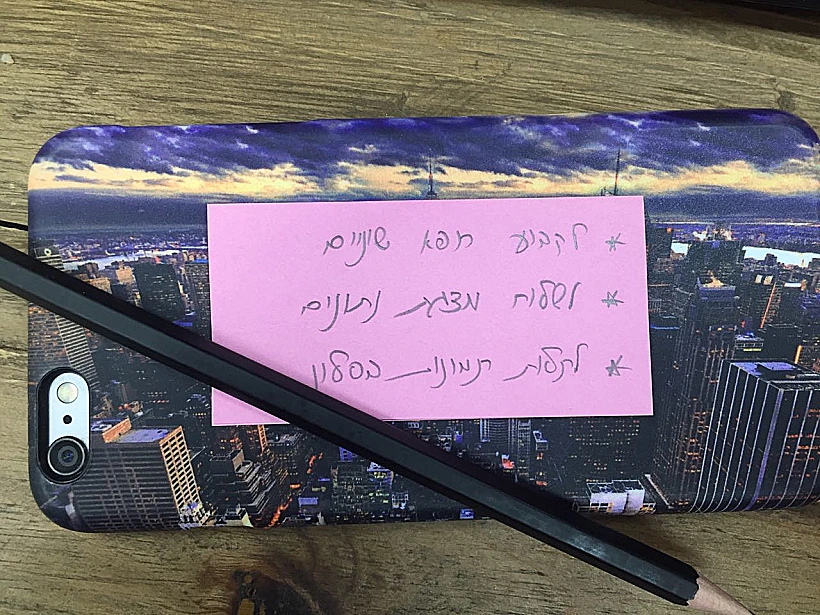 * לקבוע רופא שיניים
* לשלוח מצגת נתונים
* לתלות תמונות בסלון